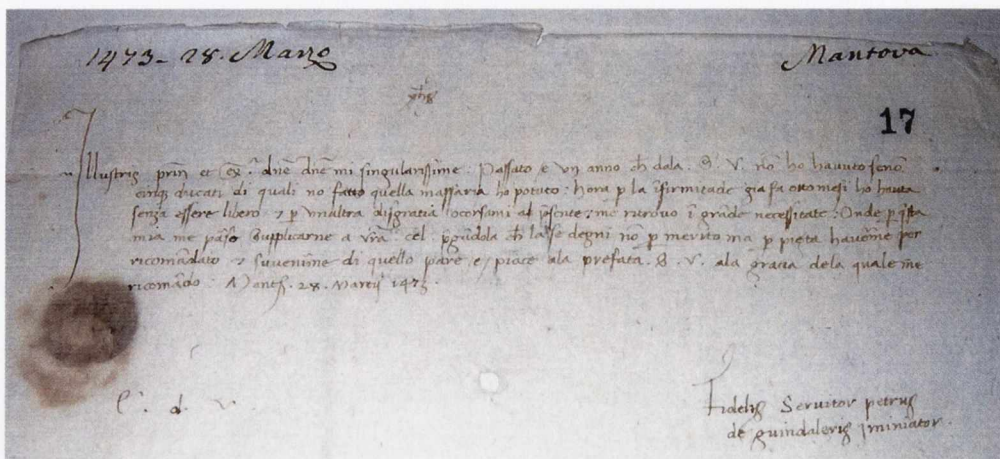 1473 - 28. Marzo
Mantova
17
Illustris prin et Ex. dne dne mi singularissime. Passato e un anno ch dala S. V. no ho havuto seno
cinq ducati di quali no fatto quella massaria ho potuto: hora p la ifirmitade gia fa otto mesi ho hauta
senza essere libero, & p unaltra disgratia ocorsami al psente: me ritrovo i grade necessitate: Onde p qsta
mia me supplicarne a vra cel. pgadola ch la se degni no p merito ma p pieta haverme per
ricomadato & suvenirne di quello pare e piace ala prefata S. V. ala gracia dela quale me
ricomado. 28. Marcij 1473.
E. d. V.
Fidelis Servitor petrus
de guindaleris iminiator.